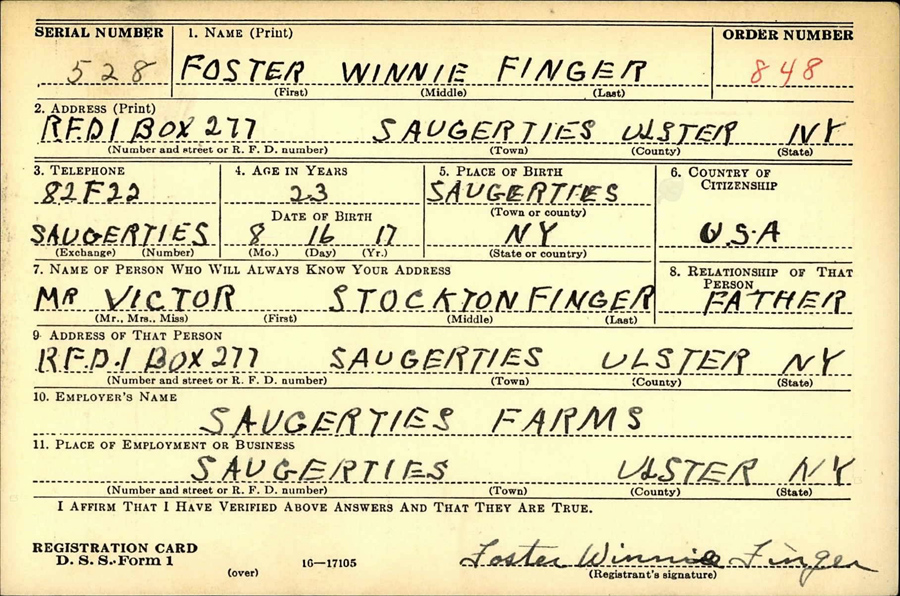 SERIAL NUMBER 1. NAME (Print) ORDER NUMBER
528 FOSTER WINNIE FINGER 848
(First) (Middle) (Last)
2. ADDRESS (Print)
R.F.D.1 BOX 277 SAUGERTIES ULSTER NY
(Number and street or R. F. D. number) (Town) (County) (State)
3. TELEPHONE 4. AGE IN YEARS 5. PLACE OF BIRTH 6. COUNTRY OF CITIZENSHIP
82F22 23 SAUGERTIES
DATE OF BIRTH (Town or county)
SAUGERTIES 8 16 17 NY U.S.A
(Exchange) (Number) (Mo.) (Day) (Yr.) (State or country)
7. NAME OF PERSON WHO WILL ALWAYS KNOW YOUR ADDRESS 8. RELATIONSHIP OF THAT PERSON
MR VICTOR STOCKTON FINGER FATHER
(Mr., Mrs., Miss) (First) (Middle) (Last)
9. ADDRESS OF THAT PERSON
R.F.D.1 BOX 277 SAUGERTIES ULSTER NY
(Number and street or R. F. D. number) (Town) (County) (State)
10. EMPLOYER'S NAME
SAUGERTIES FARMS
11. PLACE OF EMPLOYMENT OR BUSINESS
SAUGERTIES ULSTER NY
(Number and street or R. F. D. number) (Town) (County) (State)
I AFFIRM THAT I HAVE VERIFIED ABOVE ANSWERS AND THAT THEY ARE TRUE.
REGISTRATION CARD
D. S. S. Form 1 (over) 16—17105 Foster Winnie Finger
(Registrant's signature)